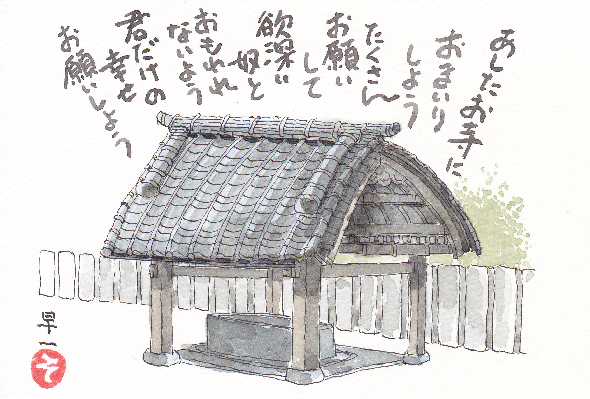 あしたお寺に
おまいり
しよう
たくさん
お願い
して
欲深い
奴と
おもわれ
ないよう
君だけの
幸せ
お願いしよう
早一
そ